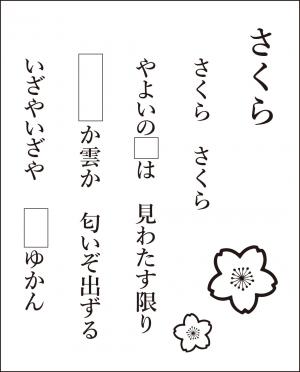 さくら
さくら　さくら
やよいの□は　見わたす限り
□か雲か　匂いぞ出ずる
いざやいざや　□ゆかん